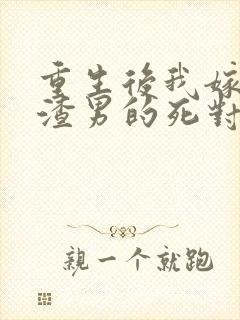 重生後我嫁
渣男的死對
親一个就跑